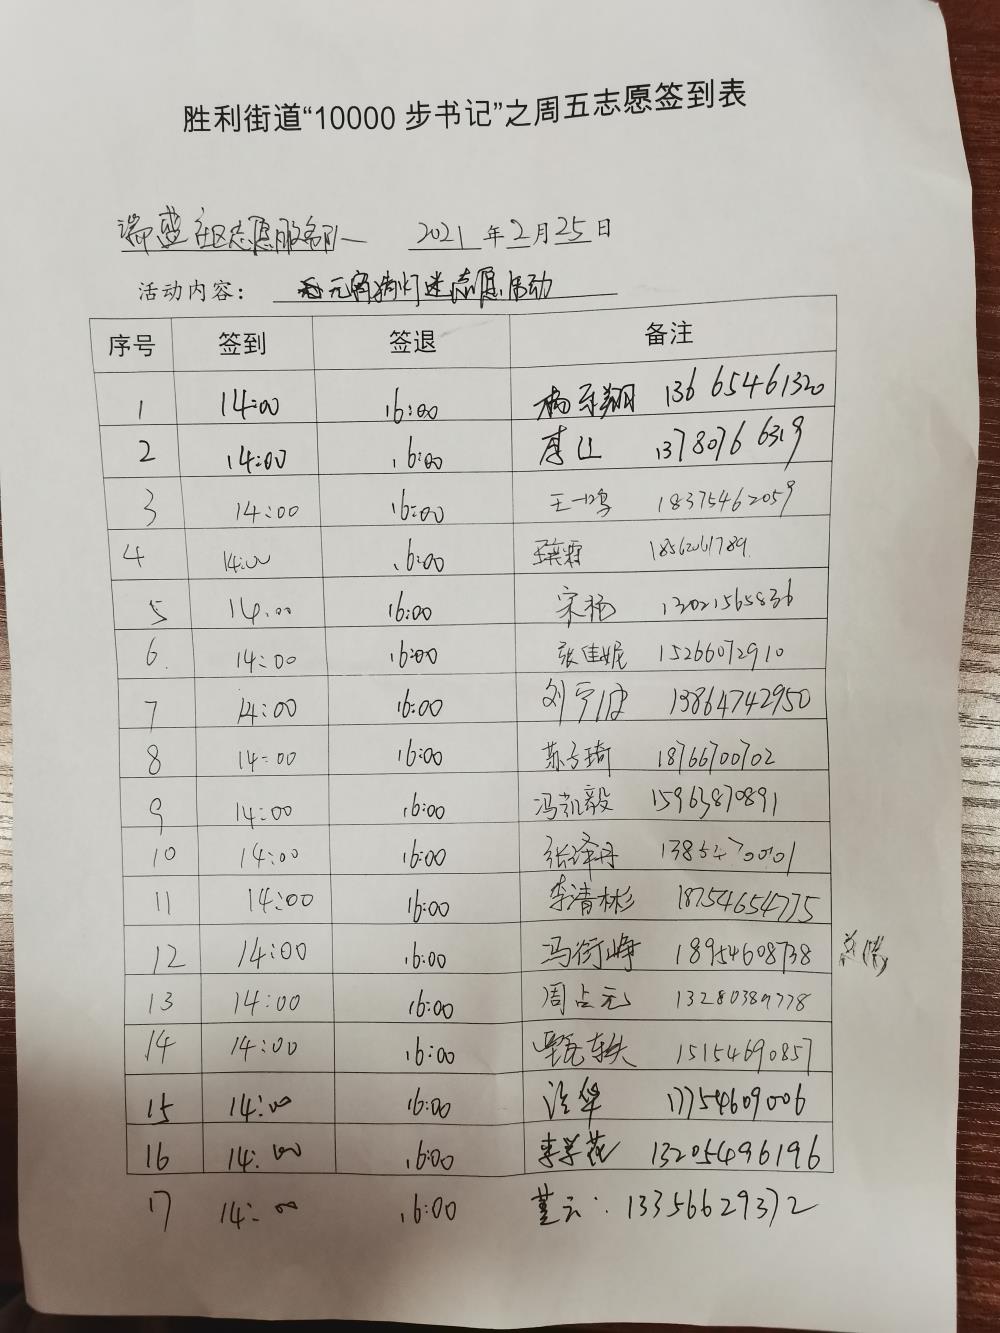 胜利街道“10000步书记”之周五志愿签到表
瑞盛社区志愿服务队 2021年2月25日
活动内容： 元宵猜灯迷志愿活动
序号 签到 签退 备注
1 14:00 16:00 杨乐翔 13665461320
2 14:00 16:00 13780766319
3 14:00 16:00 王一鸣 18375462059
4 14:00 16:00 18562061789
5 14:00 16:00 宋杨 13021565836
6 14:00 16:00 张佳妮 15266072910
7 14:00 16:00 刘 13864742950
8 14:00 16:00 苏子琦 18766700702
9 14:00 16:00 冯凯毅 15963870891
10 14:00 16:00 张泽丹 13854670001
11 14:00 16:00 李清彬 18754654775
12 14:00 16:00 冯衍峥 18954608738
13 14:00 16:00 周占元 13280389778
14 14:00 16:00 15154690857
15 14:00 16:00 17754609006
16 14:00 16:00 李学花 13205496196
17 14:00 16:00 董云 13356629372